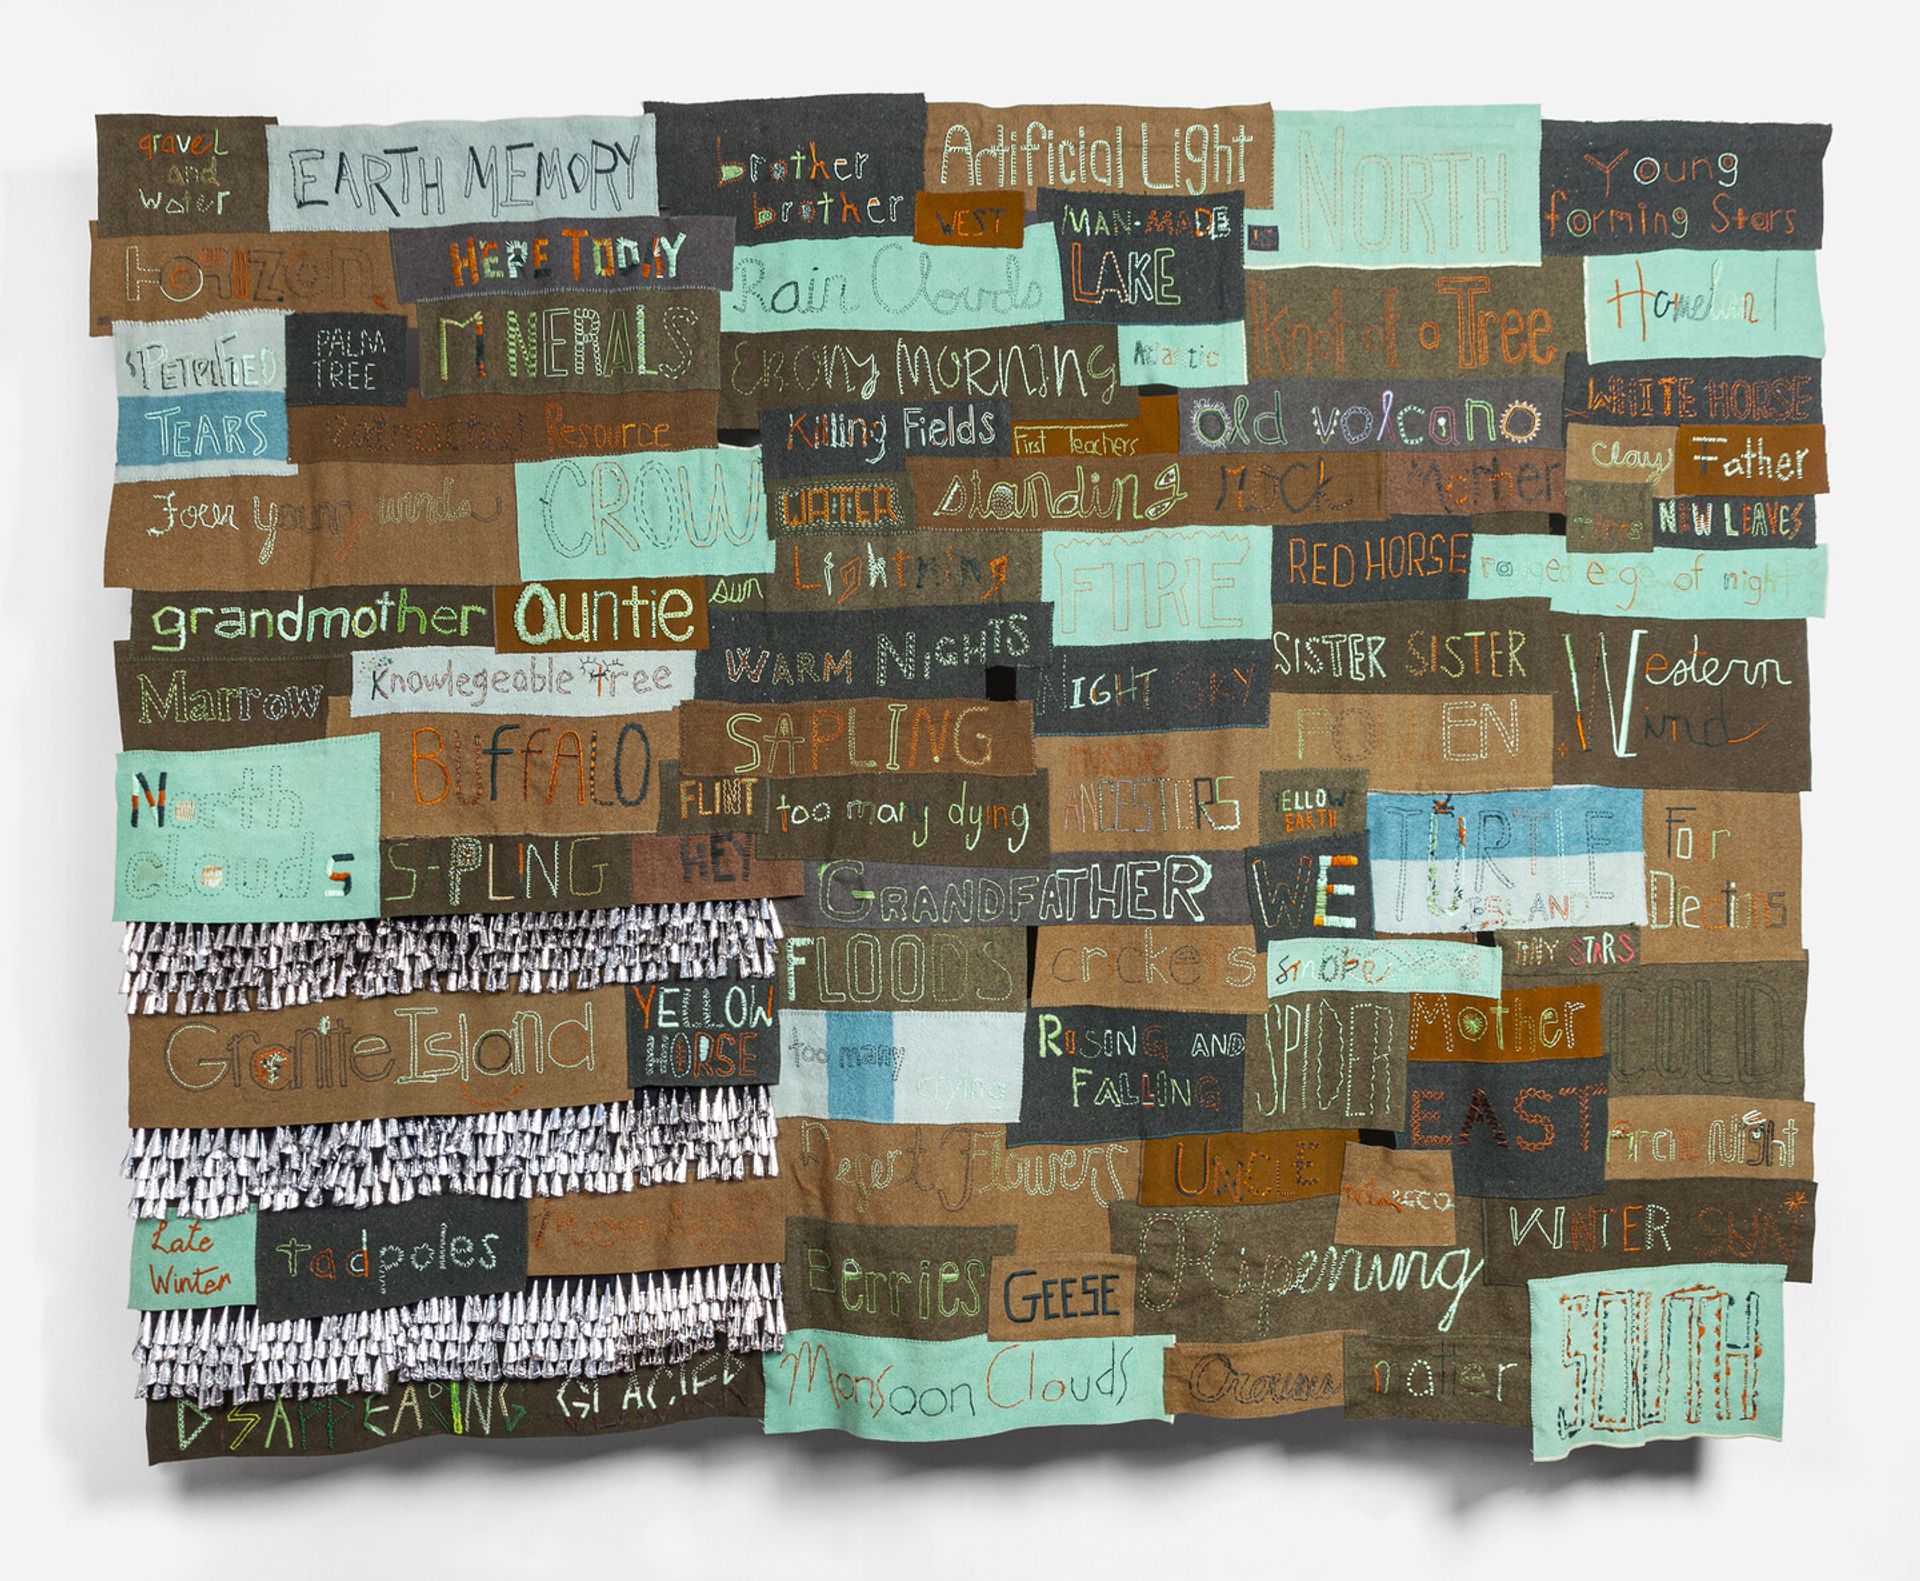 gravel
and
water
EARTH MEMORY
brother
brother
Artificial Light
NORTH
Young
forming Stars
WEST
MAN-MADE
LAKE
Horizon
HERE TODAY
Rain Clouds
Knot of a Tree
PETRIFIED
PALM
TREE
MINERALS
EBONY MORNING
Atlantic
WHITE HORSE
TEARS
Resource
Killing Fields
First Teachers
old volcano
clay
Father
Four young winds
CROW
WATER
standing rock
Mother
NEW LEAVES
Lightning
FIRE
RED HORSE
ragged edge of night
grandmother
auntie
sun
WARM NIGHTS
SISTER SISTER
Western
Wind
Marrow
Knowlegeable tree
NIGHT SKY
BUFFALO
SAPLING
POLLEN
North
clouds
FLINT
too many dying
ANCESTORS
YELLOW
EARTH
TURTLE
ISLAND
Four
Directions
SAPLING
HEY
GRANDFATHER
WE
FLOODS
crickets
smoke
TINY STARS
Granite Island
YELLOW
HORSE
too many
crying
RISING AND
FALLING
SPIDER
Mother
COLD
EAST
Desert Flowers
UNCLE
tobacco
Night
Late
Winter
tadpoles
Berries
GEESE
Ripening
WINTER SUN
SOUTH
DISAPPEARING GLACIER
Monsoon Clouds
matter